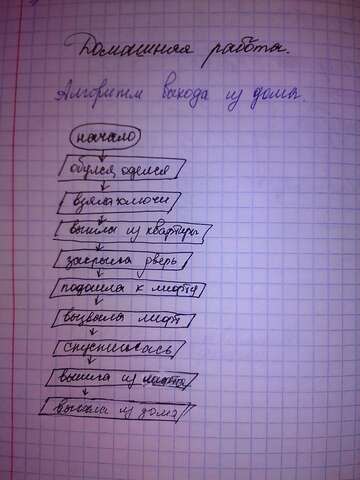 Домашняя работа.
Алгоритм выхода из дома.
начало
обулся, оделся
взяла ключи
вышла из квартиры
закрыла дверь
подошла к лифту
вызвала лифт
спустилась
вышла из лифта
вышла из дома